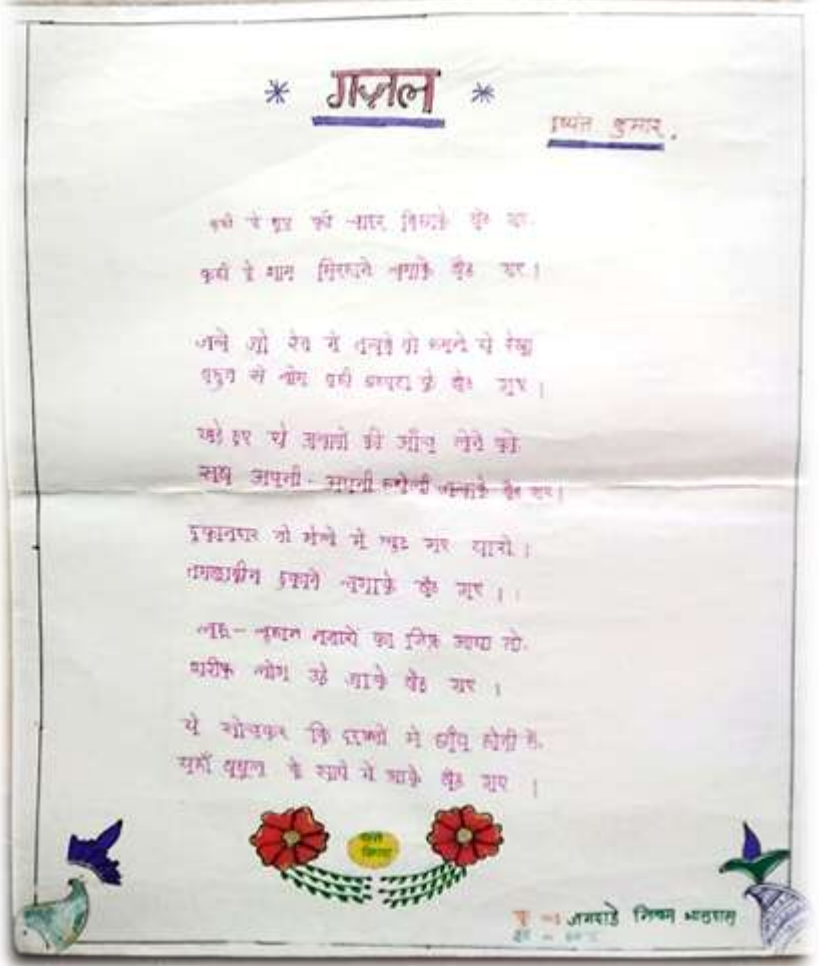 * गज़ल *
दुष्यंत कुमार.
कहीं पे धूप की चादर बिछाके बैठ गए.
कहीं पे शाम सिरहाने लगाके बैठ गए।
जले जो रेत में तलुवे तो हमने ये देखा
बहुत से लोग वहीं छटपटा के बैठ गए।
खड़े हुए थे अलावों की आँच लेने को
सब अपनी-अपनी हथेली जलाके बैठ गए।
दुकानदार तो मेले में लुट गए यारो।
तमाशबीन दुकानें लगाके बैठ गए।
लहू-लुहान नजारों का जिक्र आया तो.
शरीफ लोग उठे जाके बैठ गए।
ये सोचकर कि दरख्तों में छाँव होती है.
यहाँ बबूल के साये में आके बैठ गए।